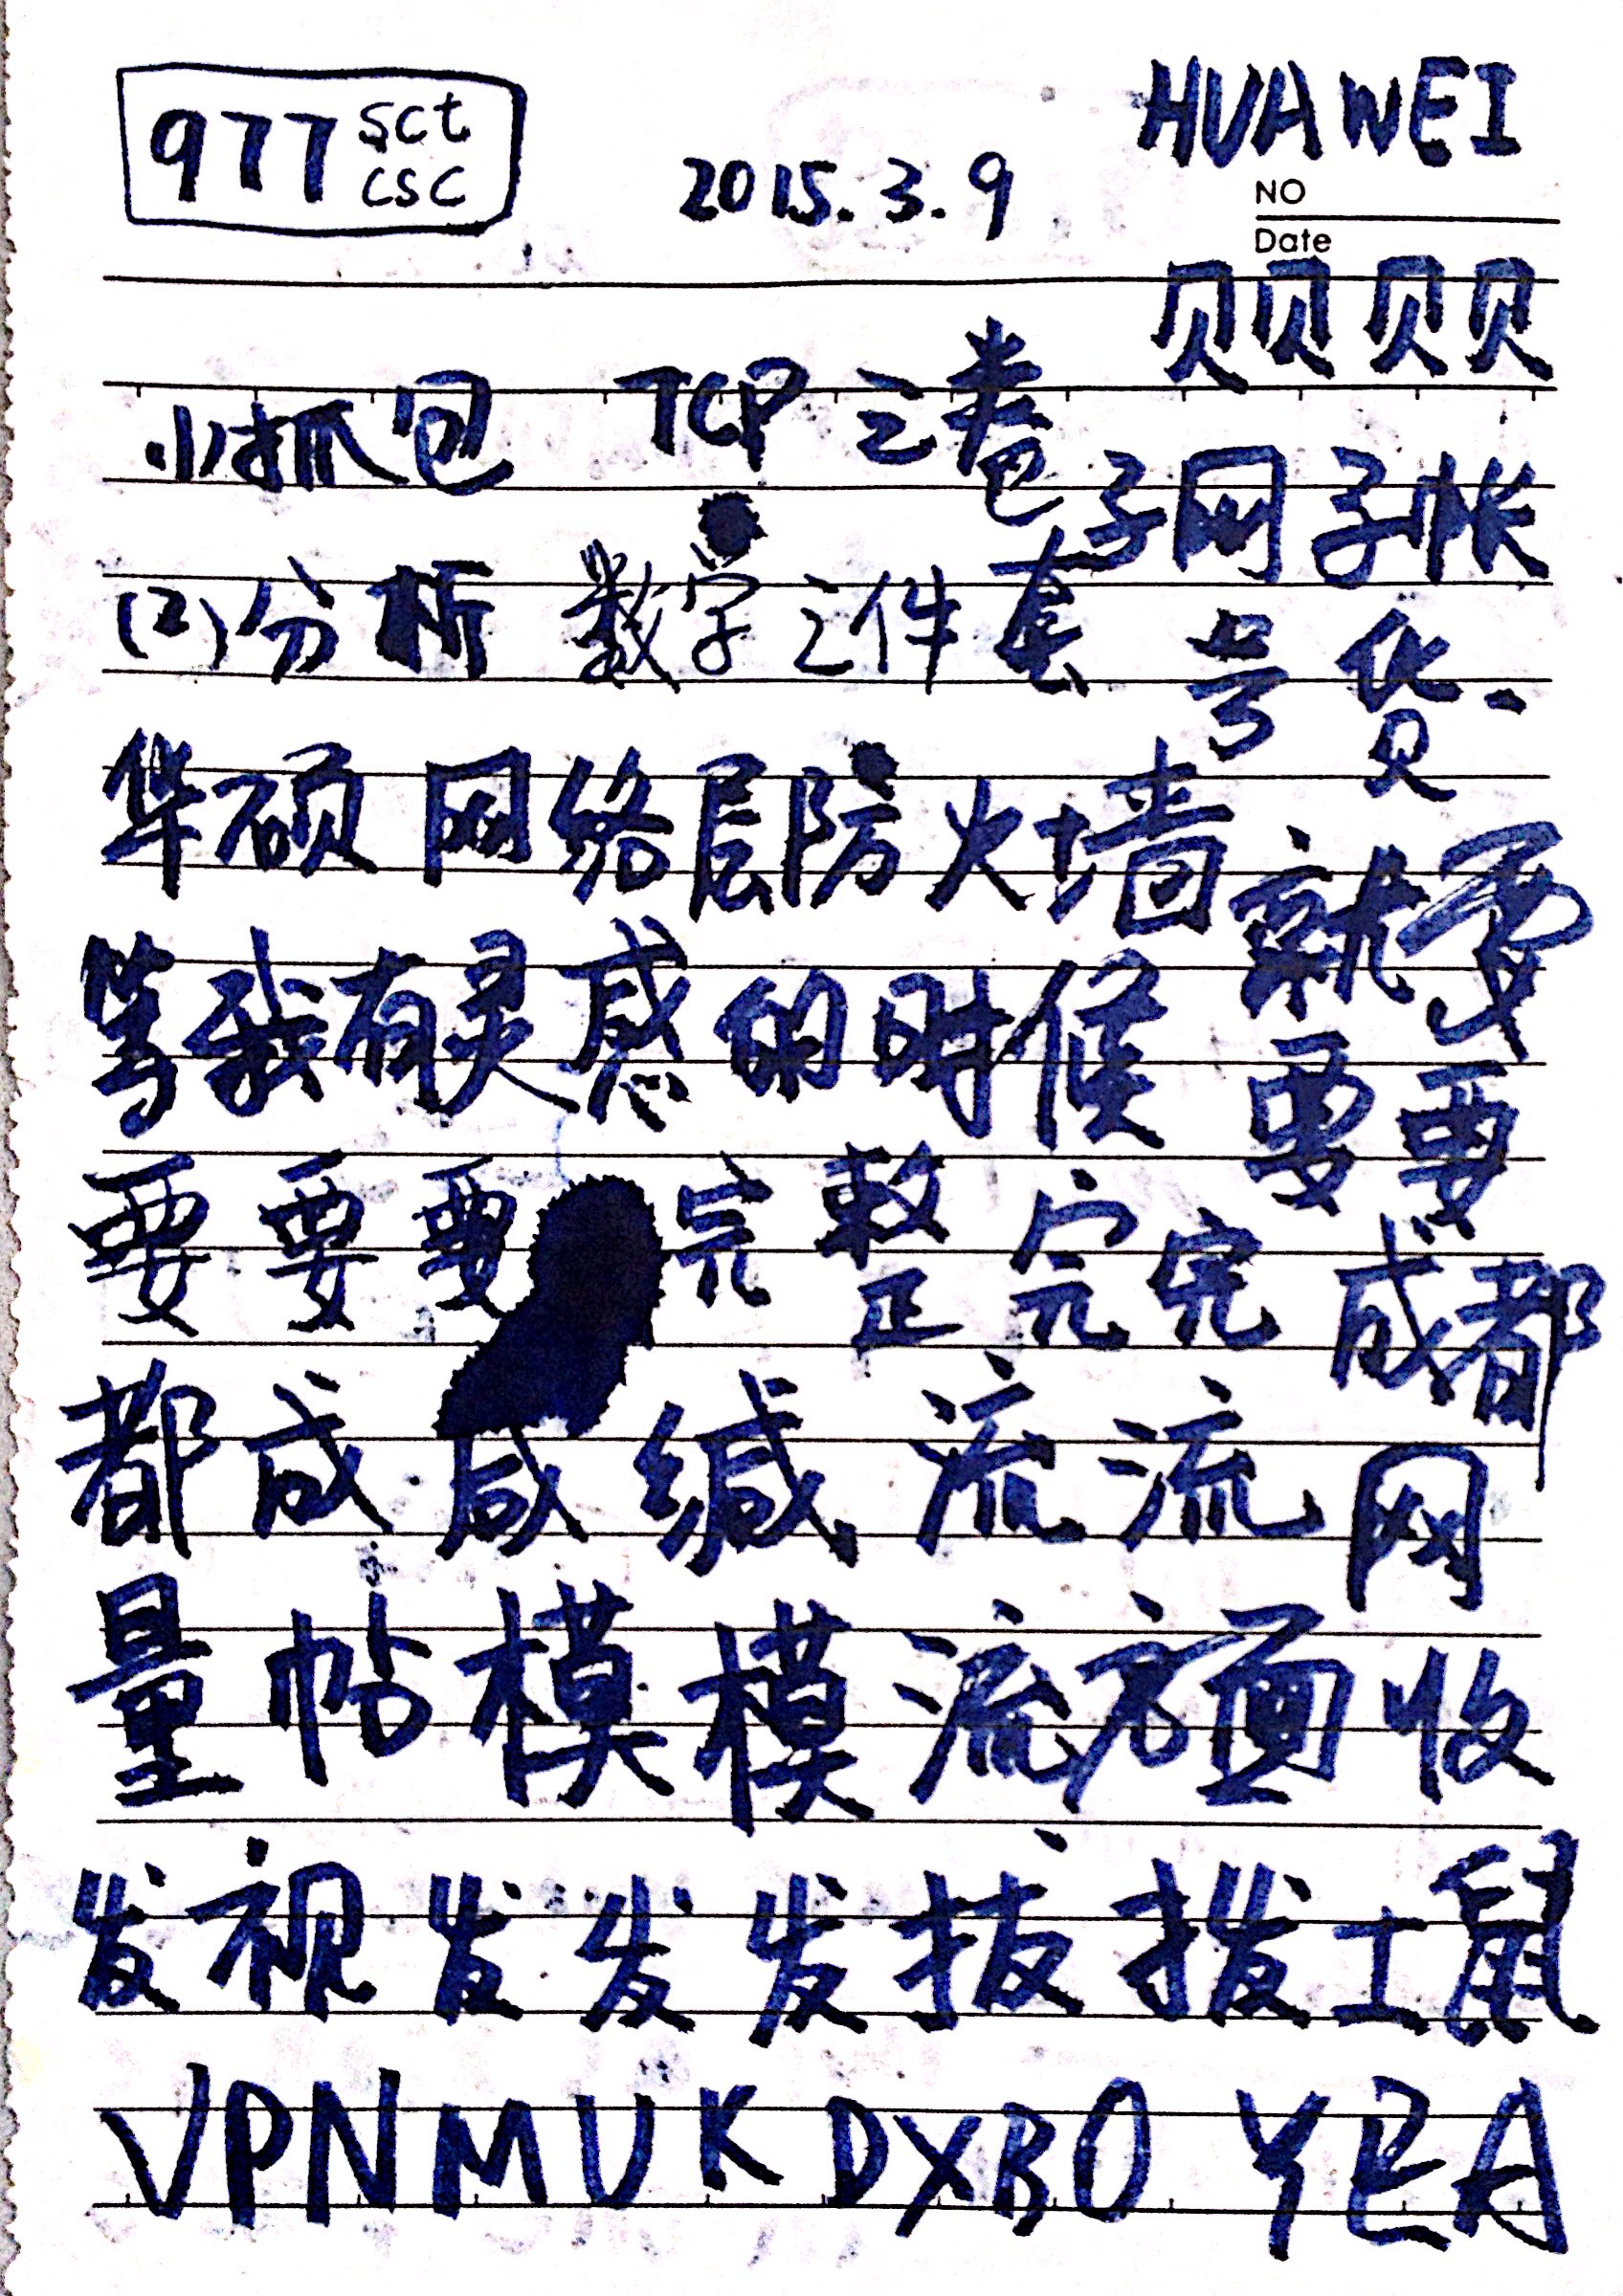 977 sct csc
2015.3.9
HUAWEI
NO
Date
贝贝贝贝
小抓包 TCP 之卷包
子网子帐
(2)分析 数字之件套
号货
华硕网络层防火墙
就要
等我有灵感的时候
要要
要要要 完整完完
成都
都成咸缄流流网
量帖模模流方面收
发视发发发拔拨土鼠
VPNMUK DXBO YEA